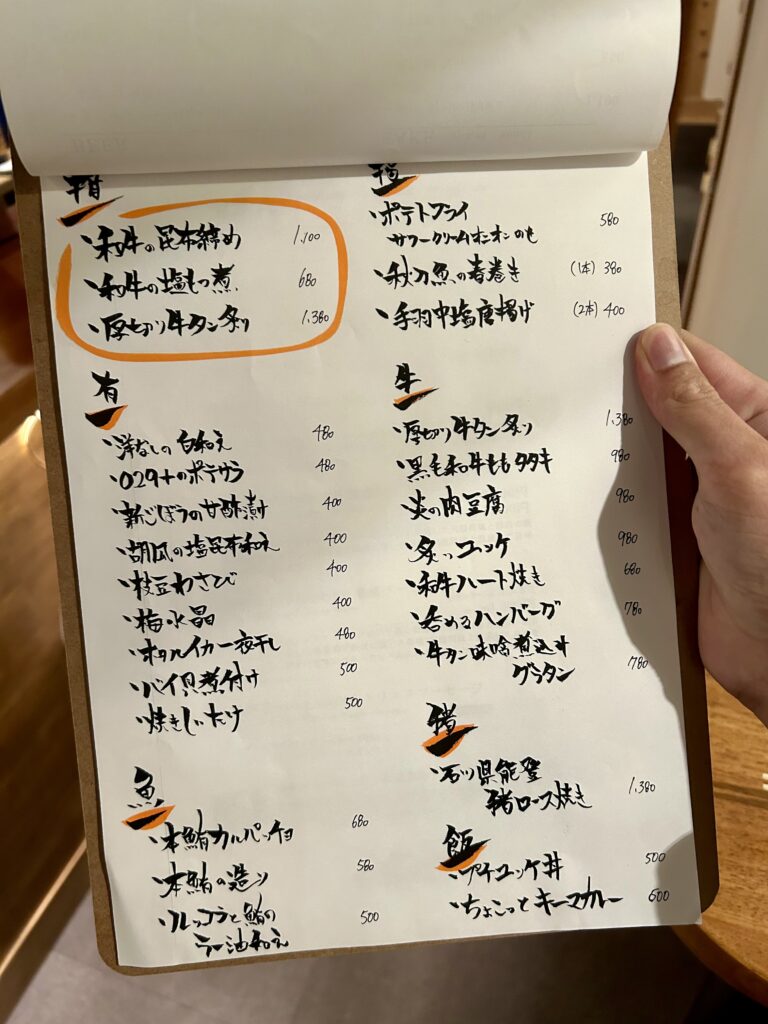 ・和牛の昆布締め 1,100
・和牛の塩もつ煮 680
・厚切り牛タン炙り 1,380
有
・洋なしの白和え 480
・029+のポテサラ 480
・新ごぼうの甘酢漬け 400
・胡瓜の塩昆布和え 400
・枝豆わさび 400
・梅水晶 400
・ホタルイカ一夜干し 480
・バイ貝煮付け 500
・焼きしいたけ 500
魚
・本鮪カルパッチョ 680
・本鮪の造り 580
・ルッコラと鮪の
ラー油和え 500
揚
・ポテトフライ
サワークリームオニオンのせ 580
・秋刀魚の春巻き (1本) 380
・手羽中塩唐揚げ (2本) 400
牛
・厚切り牛タン炙り 1,380
・黒毛和牛ももタタキ 980
・炎の肉豆腐 980
・炙りユッケ 980
・和牛ハート焼き 680
・呑めるハンバーグ 780
・牛タン味噌煮込み
グラタン 780
猪
・石川県能登
猪ロース焼き 1,380
飯
・プチユッケ丼 500
・ちょこっとキーマカレー 600